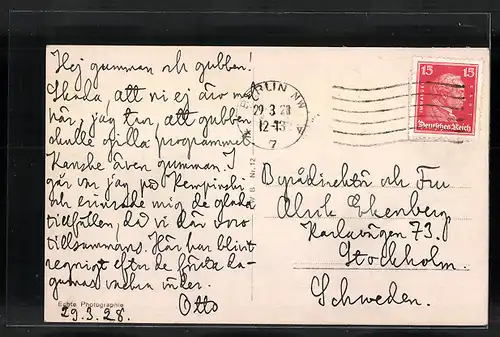 Hej gumman och gubben!
Skada, att ni ej äro med
här, jag tror, att gubben
skulle gilla programmet.
Kanske även gumman. I
går var jag på Kempinski
och erinrade mig de glada
tillfällen, då vi där voro
tillsammans. Här har blivit
regnigt efter de första da-
garnas vackra väder.
Otto
29.3.28.
Echte Photographie
BERLIN NW
29 3 28
12-13
7
15 15
Deutsches Reich
Byrådirektör och Fru
Ulrik Ekenberg
Karlavägen 73.
Stockholm.
Schweden.